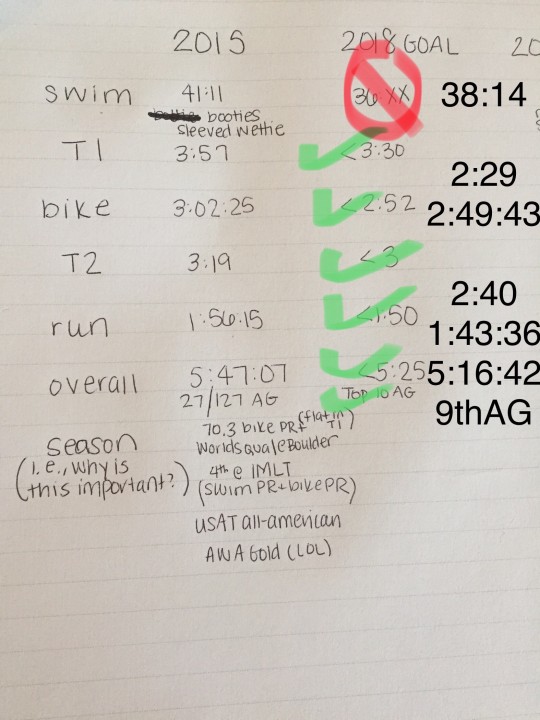 2015 2018 GOAL 20
swim 41:11 36:XX 38:14
booties
sleeved wettie
T1 3:57 <3:30 2:29
bike 3:02:25 <2:52 2:49:43
T2 3:19 <3 2:40
run 1:56:15 <1:50 1:43:36
overall 5:47:07 <5:25 5:16:42
27/127 AG TOP 10 AG 9thAG
70.3 bike PR+ (flat in T1)
season Worlds qual@Boulder
(i.e., why is this important?) 4th @ IMLT
(swim PR+bike PR)
USAT all-american
AWA Gold (LOL)